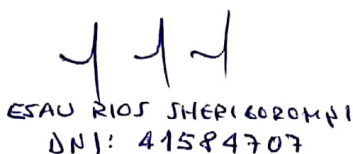 ESAU RIOS SHERIGOROMPI
DNI: 41584707